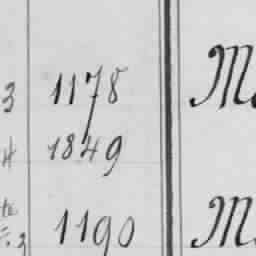 3 1178 M
4 1849
te 3 1190 M